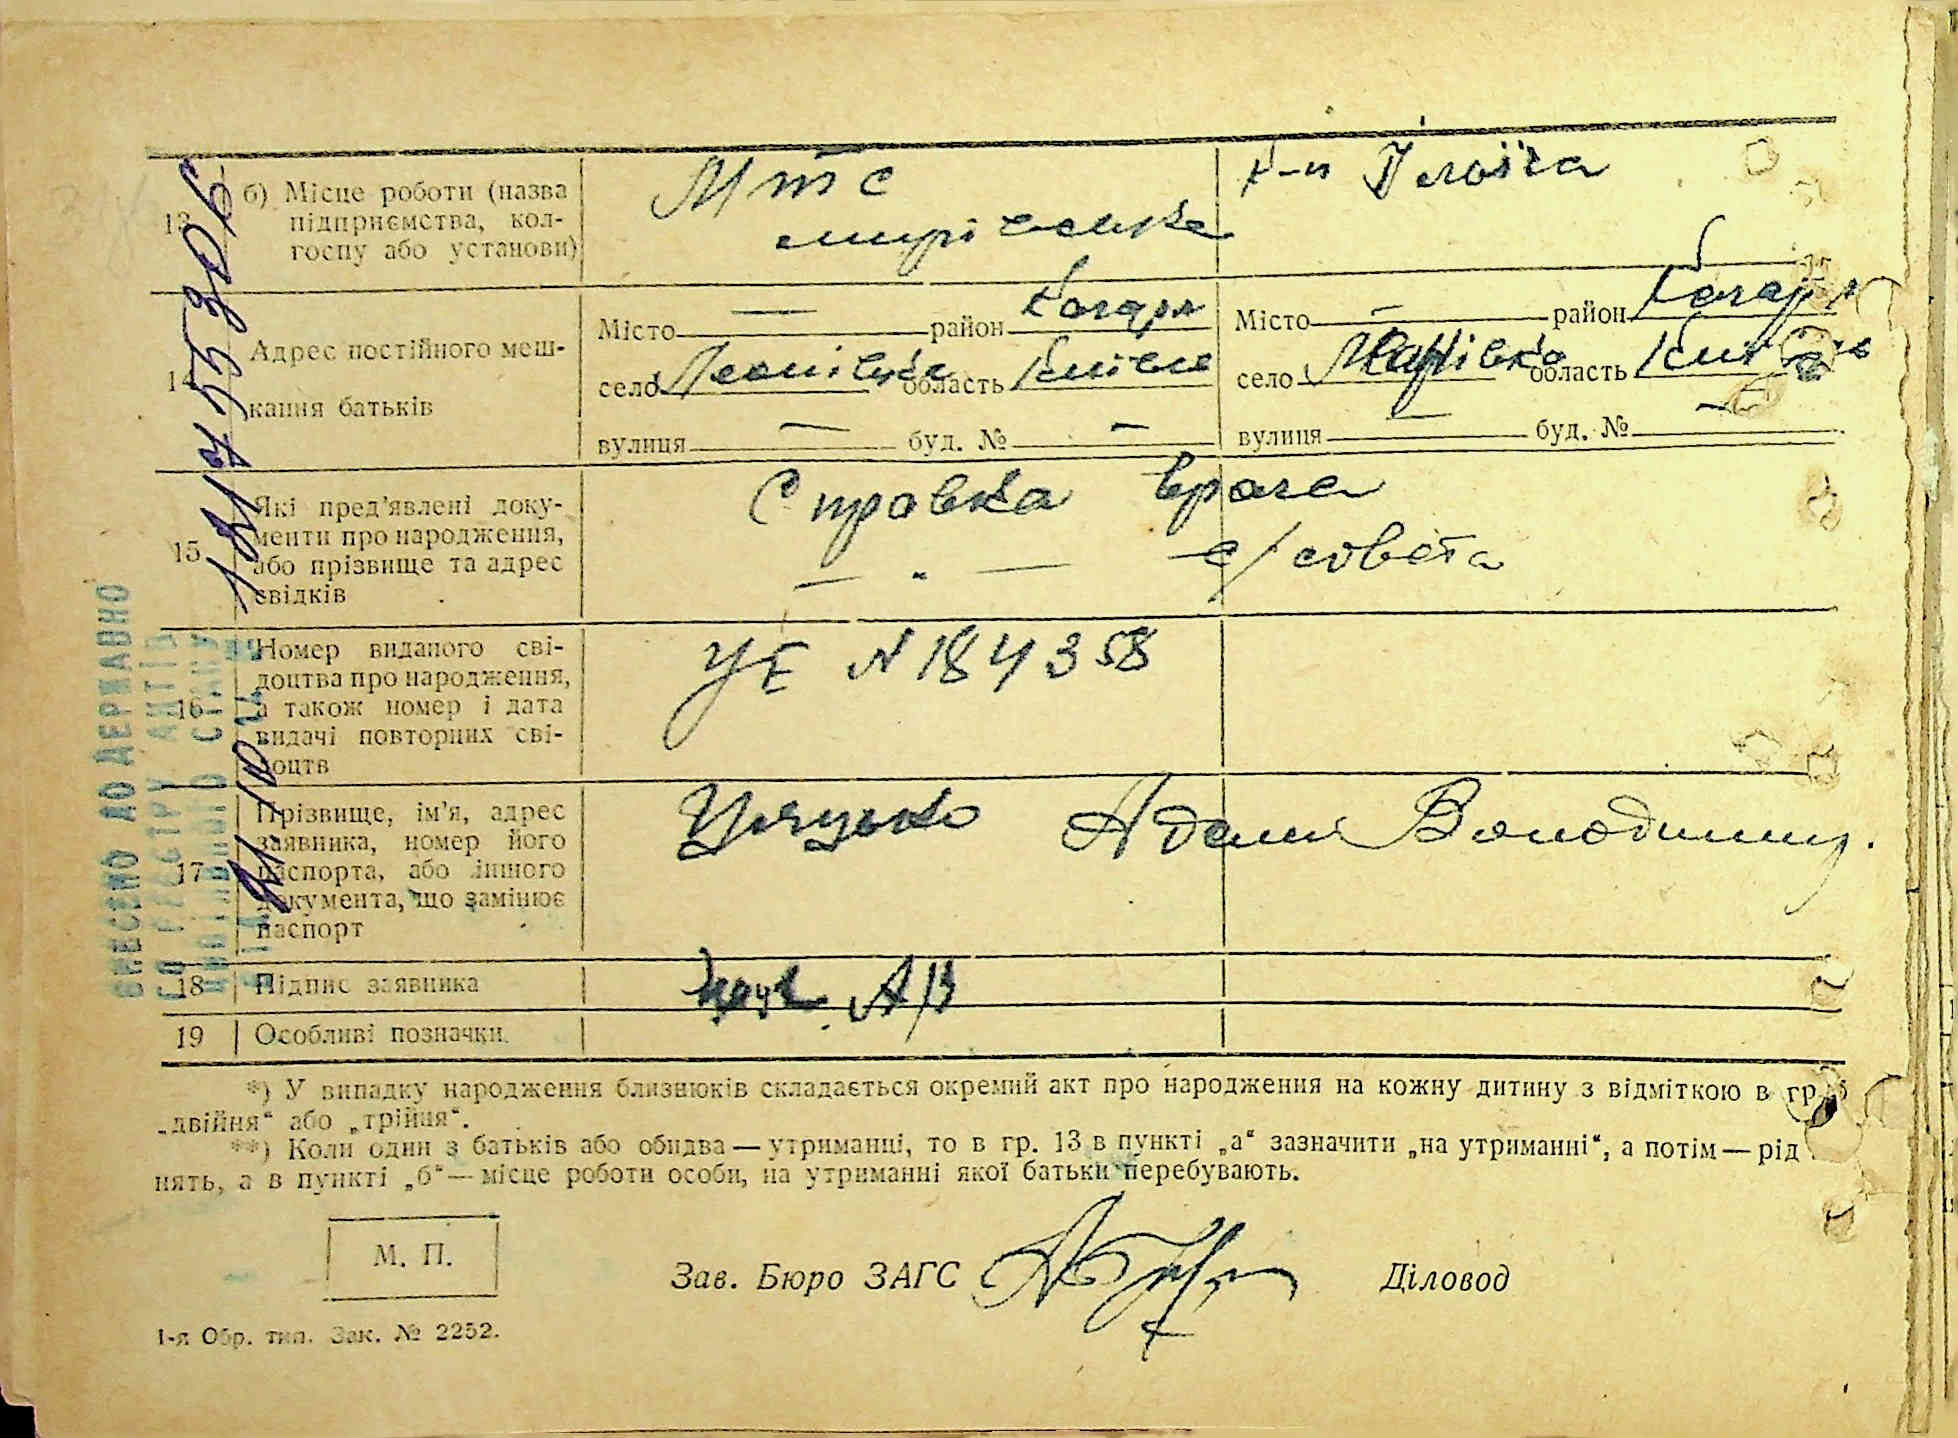 13 б) Місце роботи (назва
підприємства, кол-
госпу або установи)
МТС
к-п Ілліча
14 Адрес постійного меш-
кання батьків
Місто — район Кагарл
село область Київськ
вулиця — буд. № —
Місто — район Кагарл
село область Київськ
вулиця — буд. № —
15 Які пред'явлені доку-
менти про народження,
або прізвище та адрес
свідків
Справка врача
— " — с/совета
16 Номер виданого сві-
доцтва про народження,
а також номер і дата
видачі повторних сві-
доцтв
УЕ N 184358
17 Прізвище, ім'я, адрес
заявника, номер його
паспорта, або іншого
документа, що замінює
паспорт
Володимир.
18 Підпис заявника
АВ
19 Особливі позначки.
*) У випадку народження близнюків складається окремий акт про народження на кожну дитину з відміткою в гр.
„двійня“ або „трійня“.
**) Коли один з батьків або обидва — утриманці, то в гр. 13 в пункті „а“ зазначити „на утриманні“, а потім — рід
нять, а в пункті „б“ — місце роботи особи, на утриманні якої батьки перебувають.
М. П.
Зав. Бюро ЗАГС
Діловод
1-я Обр. тип. Зак. № 2252.
ВНЕСЕНО ДО ДЕРЖАВНО
ГО РЕЄСТРУ АКТІВ
ЦИВІЛЬНОГО СТАНУ